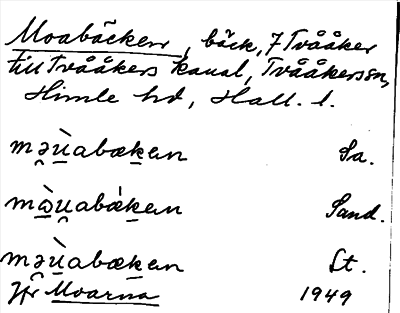 Moabäcken, bäck, 7 Tvååker
till Tvååkers kanal, Tvååkers sn,
Himle hd, Hall. l.
mə̯ùabæken Sa.
mə̀u̯abæken Sand.
mə̯ùabæken St.
Jfr Moarna 1949